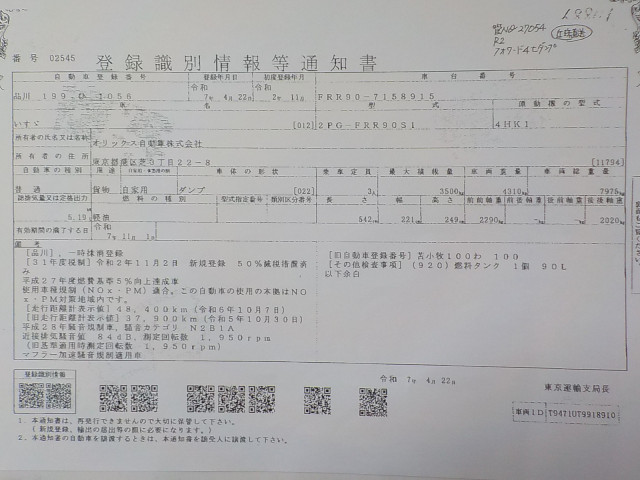 R2
番号 02545
登録識別情報等通知書
自動車登録番号 登録年月日 初度登録年月 車台番号
令和 令和
品川 7年 4月22日 2年 11月 FRR90-7158915
車名 型式 原動機の型式
いすゞ [012] 2PG-FRR90S1 4HK1
所有者の氏名又は名称 オリックス自動車株式会社
所有者の住所 東京都港区芝3丁目22-8 [11794]
自動車の種別 用途 自家用・事業用の別 車体の形状 乗車定員 最大積載量 車両重量 車両総重量
普通 貨物 自家用 ダンプ [022] 3人 3500kg 4310kg 7975kg
総排気量又は定格出力 燃料の種類 型式指定番号 類別区分番号 長さ 幅 高さ 前前軸重 前後軸重 後前軸重 後後軸重
5.19 軽油 542cm 221cm 249cm 2290kg -kg -kg 2020kg
有効期間の満了する日 令和
7年 11月 1日
備考
[品川], 一時抹消登録
[31年度規制] 令和2年11月2日 新規登録 50%減税措置済
み
平成27年度燃費基準5%向上達成車
使用車種規制(NOx・PM)適合。この自動車の使用の本拠はNO
x・PM対策地域内です。
[走行距離計表示値] 48,400km(令和6年10月7日)
[旧走行距離計表示値] 37,900km(令和5年10月30日)
平成28年騒音規制車, 騒音カテゴリ N2B1A
近接排気騒音値 84dB, 測定回転数 1,950rpm
(旧基準適用時測定回転数 1,950rpm)
マフラー加速騒音規制適用車
[旧自動車登録番号] 苫小牧100わ 100
[その他検査事項] (920)燃料タンク 1個 90L
以下余白
登録識別情報
令和 7年 4月22日
東京運輸支局長
車両ID T94710T9918910
1. 本通知書は、再発行できませんので大切に保管して下さい。
(新規登録、輸出の届出等の際に必要になります。)
2. 本通知書の自動車を譲渡するときは、本通知書を譲受人に譲渡して下さい。